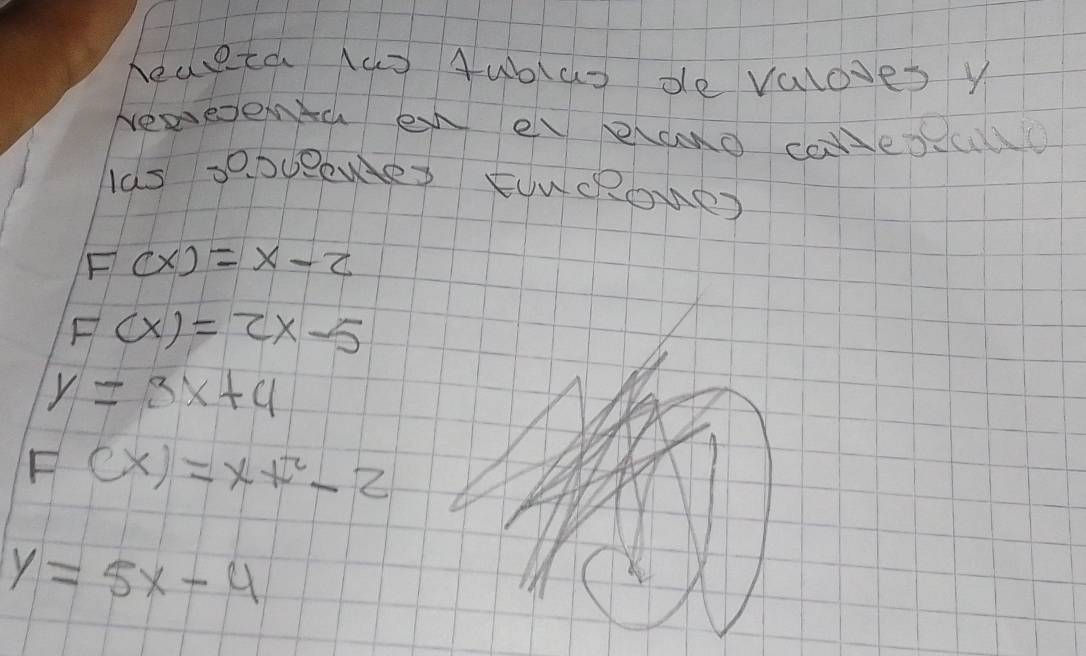 las tablas de valores y
representa en el plano cartesiano
las siguientes funciones
F(x) = x - 2
F(x) = 2x - 5
y = 3x + 4
F(x) = x - 2
y = 5x - 4